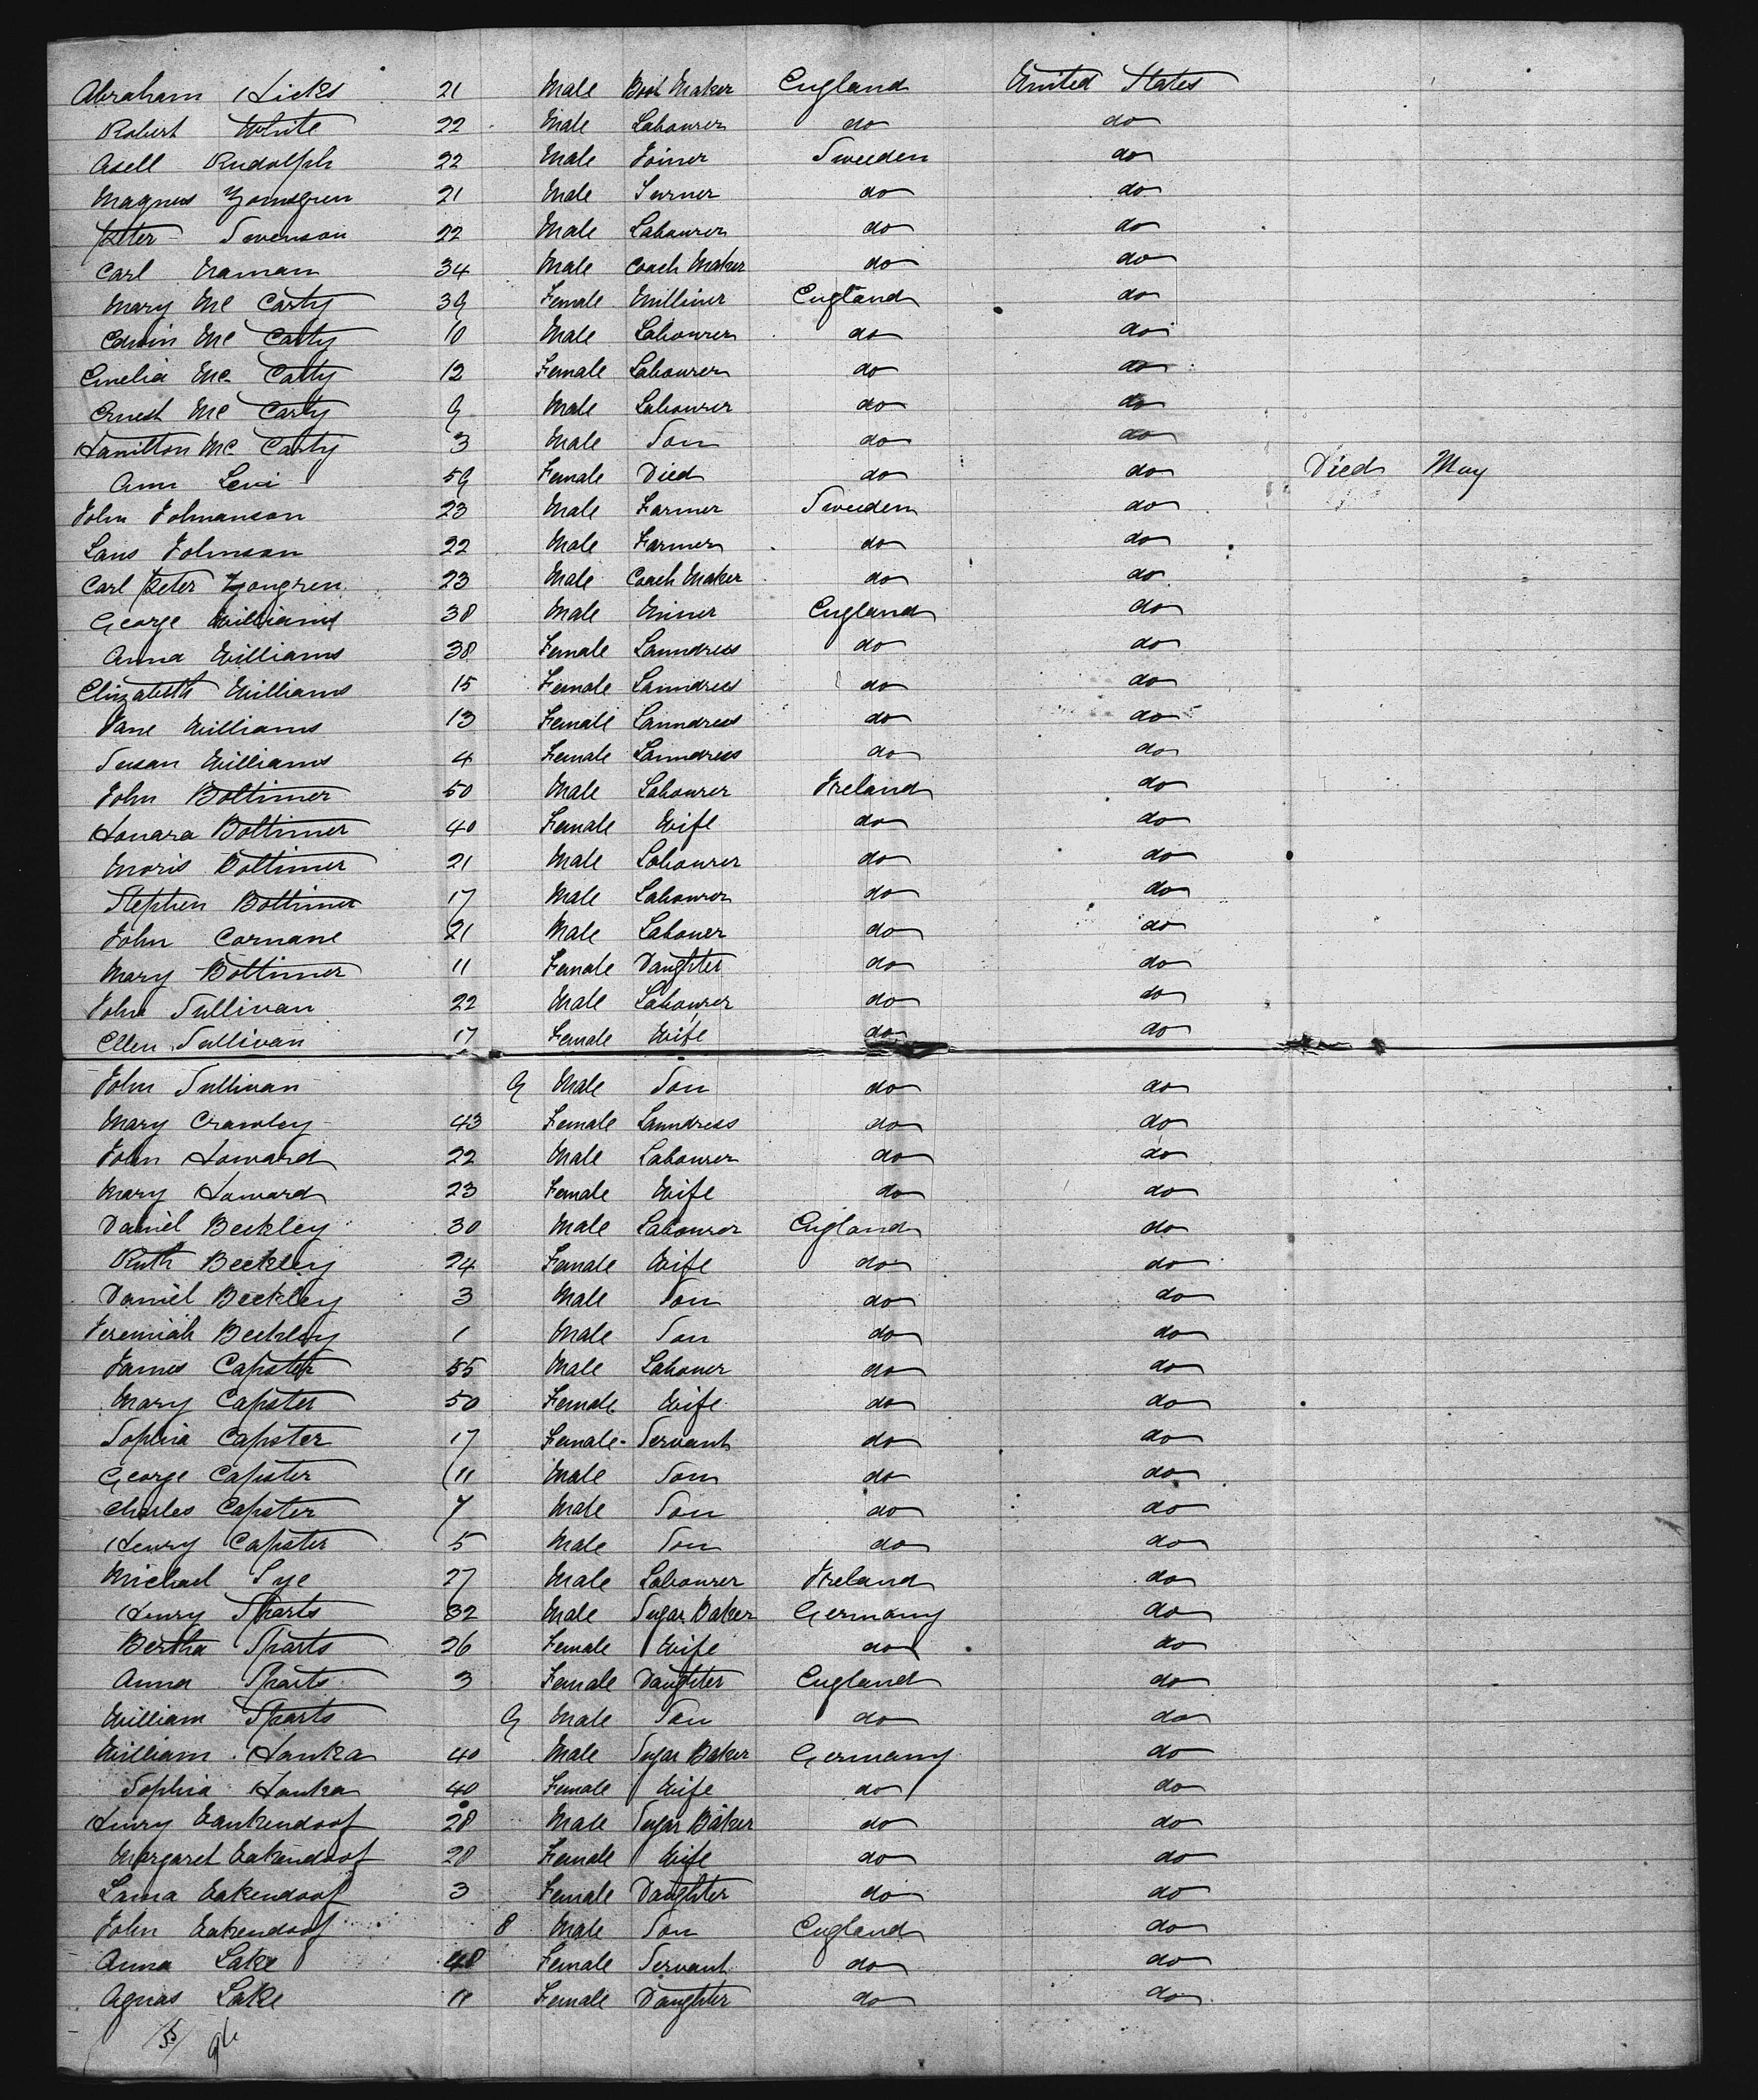 Abraham Hicks 21 Male Boot Maker England United States
Robert White 22 Male Labourer do do
Axell Rudolph 22 Male Joiner Sweeden do
Magnus 21 Male Turner do do
Peter Swenson 22 Male Labourer do do
Carl Eraman 34 Male Coach Maker do do
Mary Mc Carty 39 Female Milliner England do
Edwin Mc Carty 10 Male Labourer do do
Emelia Mc Carty 12 Female Labourer do do
Ernest Mc Carty 9 Male Labourer do do
Hamilton Mc Carty 3 Male Son do do
Ann Levi 59 Female Died do do Died May
John Johnanson 23 Male Farmer Sweeden do
Lans Johnson 22 Male Farmer do do
Carl Peter Ljongren 23 Male Coach Maker do do
George Williams 38 Male Miner England do
Anna Williams 38 Female Laundress do do
Elizabeth Williams 15 Female Laundress do do
Jane Williams 13 Female Laundress do do
Susan Williams 4 Female Laundress do do
John Bottimer 50 Male Labourer Ireland do
Honara Bottimer 40 Female Wife do do
Moris Bottimer 21 Male Labourer do do
Stephen Bottimer 17 Male Labourer do do
John Cornane 21 Male Labouer do do
Mary Bottimer 11 Female Daughter do do
John Sullivan 22 Male Labourer do do
Ellen Sullivan 17 Female Wife do do
John Sullivan 9 Male Son do do
Mary Crawley 43 Female Laundress do do
John Howard 22 Male Labourer do do
Mary Howard 23 Female Wife do do
Daniel Beckley 30 Male Labourer England do
Ruth Beckley 24 Female Wife do do
Daniel Beckley 3 Male Son do do
Jeremiah Beckley 1 Male Son do do
James Capster 55 Male Labouer do do
Mary Capster 50 Female Wife do do
Sophia Capster 17 Female Servant do do
George Capster 11 Male Son do do
Charles Capster 7 Male Son do do
Henry Capster 5 Male Son do do
Michael Tye 27 Male Labourer Ireland do
Henry Sparts 32 Male Sugar Baker Germany do
Bertha Sparts 26 Female Wife do do
Anna Sparts 3 Female Daughter England do
William Sparts 9 Male Son do do
William Hanka 40 Male Sugar Baker Germany do
Sophia Hanka 40 Female Wife do do
Henry Eankendoof 28 Male Sugar Baker do do
Margaret Eakendoof 28 Female Wife do do
Lama Eakendoof 3 Female Daughter do do
John Eakendoof 8 Male Son England do
Anna Lake 48 Female Servant do do
Agnas Lake 11 Female Daughter do do